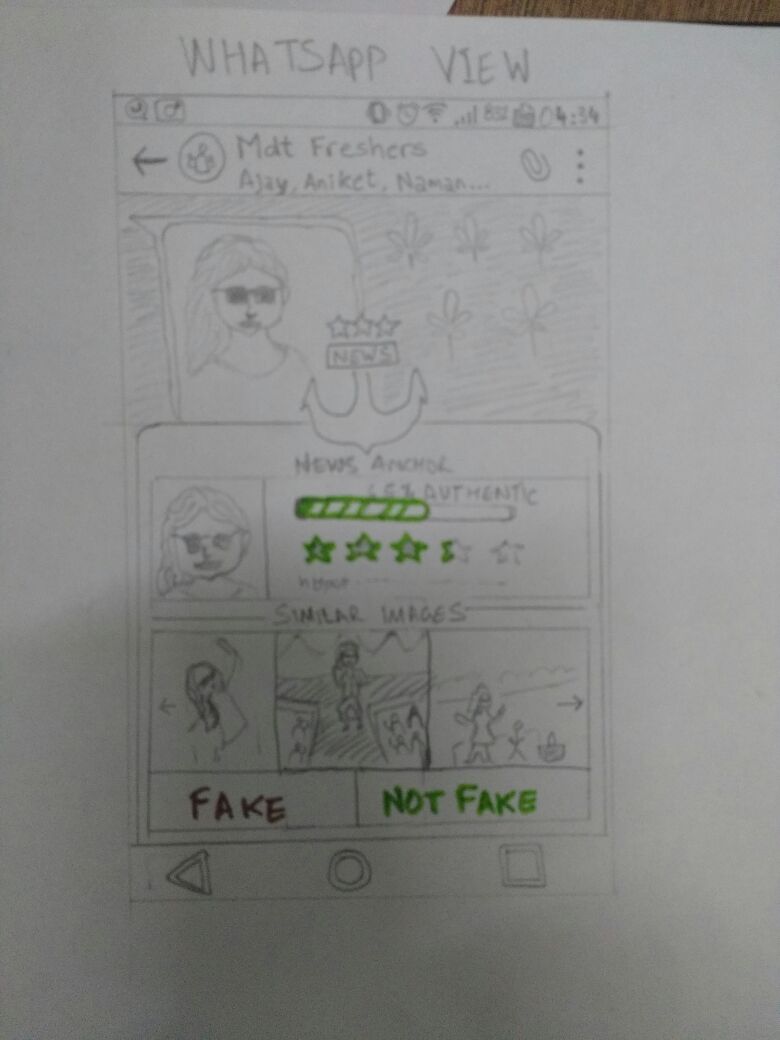 WHATSAPP VIEW
04:34
Mdt Freshers
Ajay, Aniket, Naman...
NEWS
NEWS ANCHOR
65% AUTHENTIC
SIMILAR IMAGES
FAKE
NOT FAKE